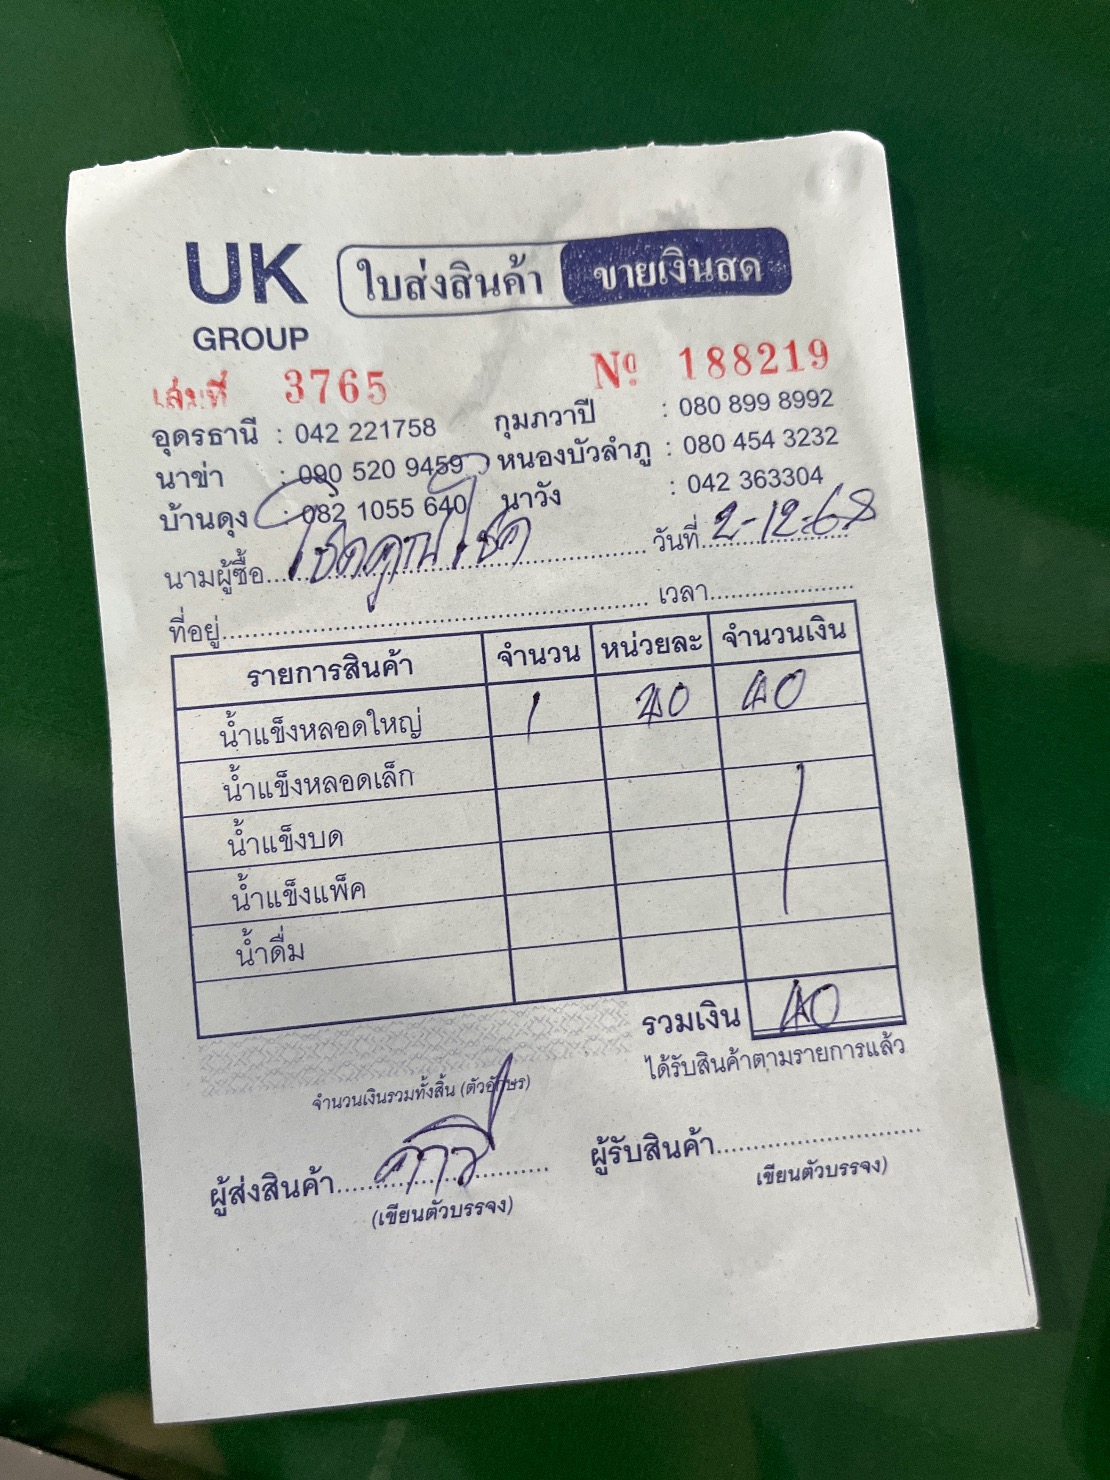 UK
GROUP
ใบส่งสินค้า ขายเงินสด
เล่มที่ 3765 Nº 188219
อุดรธานี : 042 221758 กุมภวาปี : 080 899 8992
นาข่า : 090 520 9459 หนองบัวลำภู : 080 454 3232
บ้านดุง : 082 1055 640 นาวัง : 042 363304
นามผู้ซื้อ โชคคูณโชค วันที่ 2-12-68
ที่อยู่ เวลา
รายการสินค้า จำนวน หน่วยละ จำนวนเงิน
น้ำแข็งหลอดใหญ่ 1 40 40
น้ำแข็งหลอดเล็ก
น้ำแข็งบด
น้ำแข็งแพ็ค
น้ำดื่ม
รวมเงิน 40
ได้รับสินค้าตามรายการแล้ว
จำนวนเงินรวมทั้งสิ้น (ตัวอักษร)
ผู้ส่งสินค้า ผู้รับสินค้า
(เขียนตัวบรรจง) (เขียนตัวบรรจง)